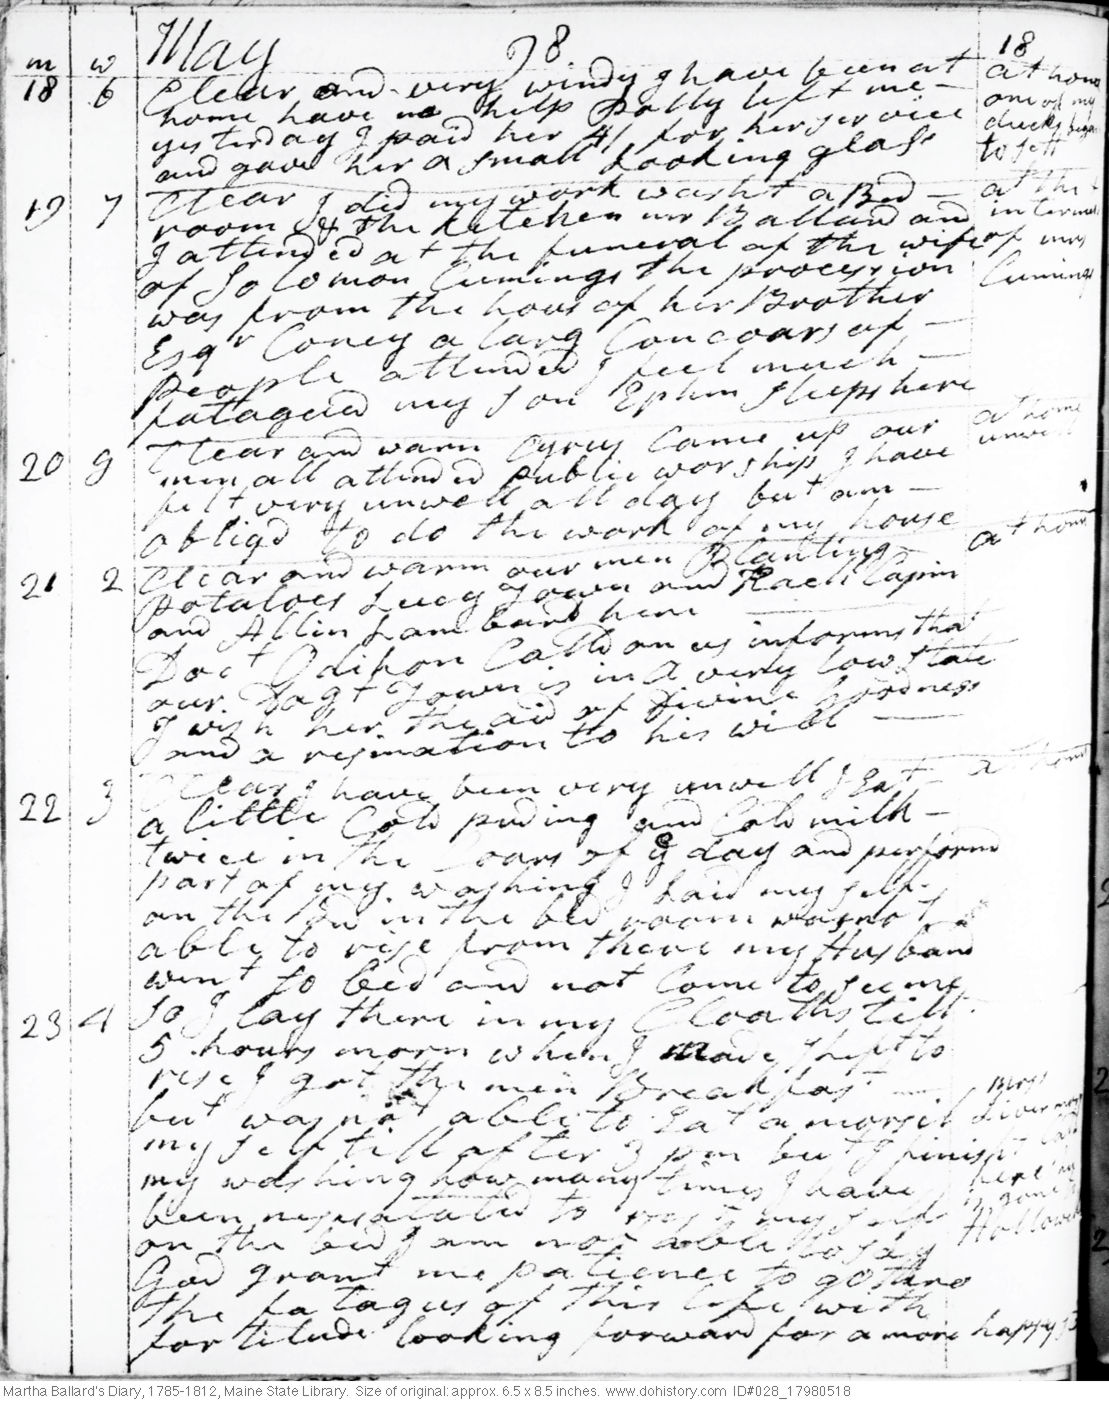 m w May 98 18
18 6 Clear and very windy I have been at at home
home have no help Polly left me one of my
yesterday I paid her 4/ for her service ducks began
and gave her a small Looking glass to sett
19 7 Clear I did my work washt a Bed at the
room & the kitchen mr Ballard and interment
I attended at the funeral of the wife of mrs
of Solomon Cumings the procession Cumings
was from the hous of her Brother
Esqr Coney a larg Concoars of
people attended I feel much
fatagued my son Ephm sleeps here
20 g Clear and warm Cyrus Came up our at home
men all attended public worship I have unwell
felt very unwell all day but am
obligd to do the work of my house
21 2 Clear and warm our men Planting at home
potatoes Lucy Town and
and Allin Lambard here
Doct Call'd on us informs that
our Dagt Town is in a very low State
I wish her the aid of Divine Goodness
and a resination to his will
22 3 Clear I have been very unwell I Eat at home
a little Cold puding and Cold milk
twice in the Coars of ye day and perform
part of my washing I Laid my self
on the bed in the bed room was not
able to rise from there my Husband
went to bed and not Come to see me
23 4 So I lay there in my Cloaths till
5 hours morn when I made shift to
rise I got the men Breakfast
but was not able to Eat a morsel
my self till after 3 pm but I finisht
my washing how many times I have
been to my self
on the bed I am not able to say
God grant me patience to go thro
the fatagues of this life with
fortitude looking forward for a more happy
Mrss
Livermore
Call
here
is gone to
Hallowell
Martha Ballard's Diary, 1785-1812, Maine State Library. Size of original: approx. 6.5 x 8.5 inches. www.dohistory.com ID#028_17980518